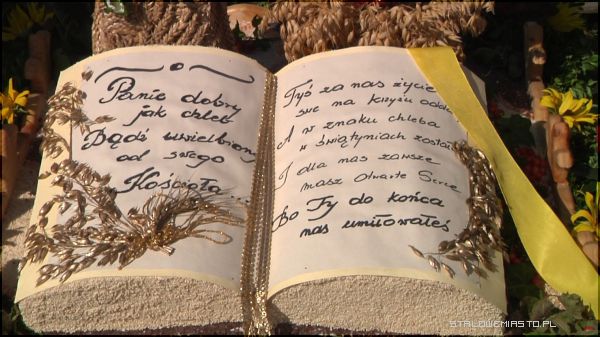 Panie dobry
jak chleb
Bądź uwielbiony
od swego
Kościoła...
Tyś za nas życie
swe na krzyżu oddał
A w znaku chleba
w świątyniach został
I dla nas zawsze
masz Otwarte Serce
Bo Ty do końca
nas umiłowałeś
STALOWEMIASTO.PL